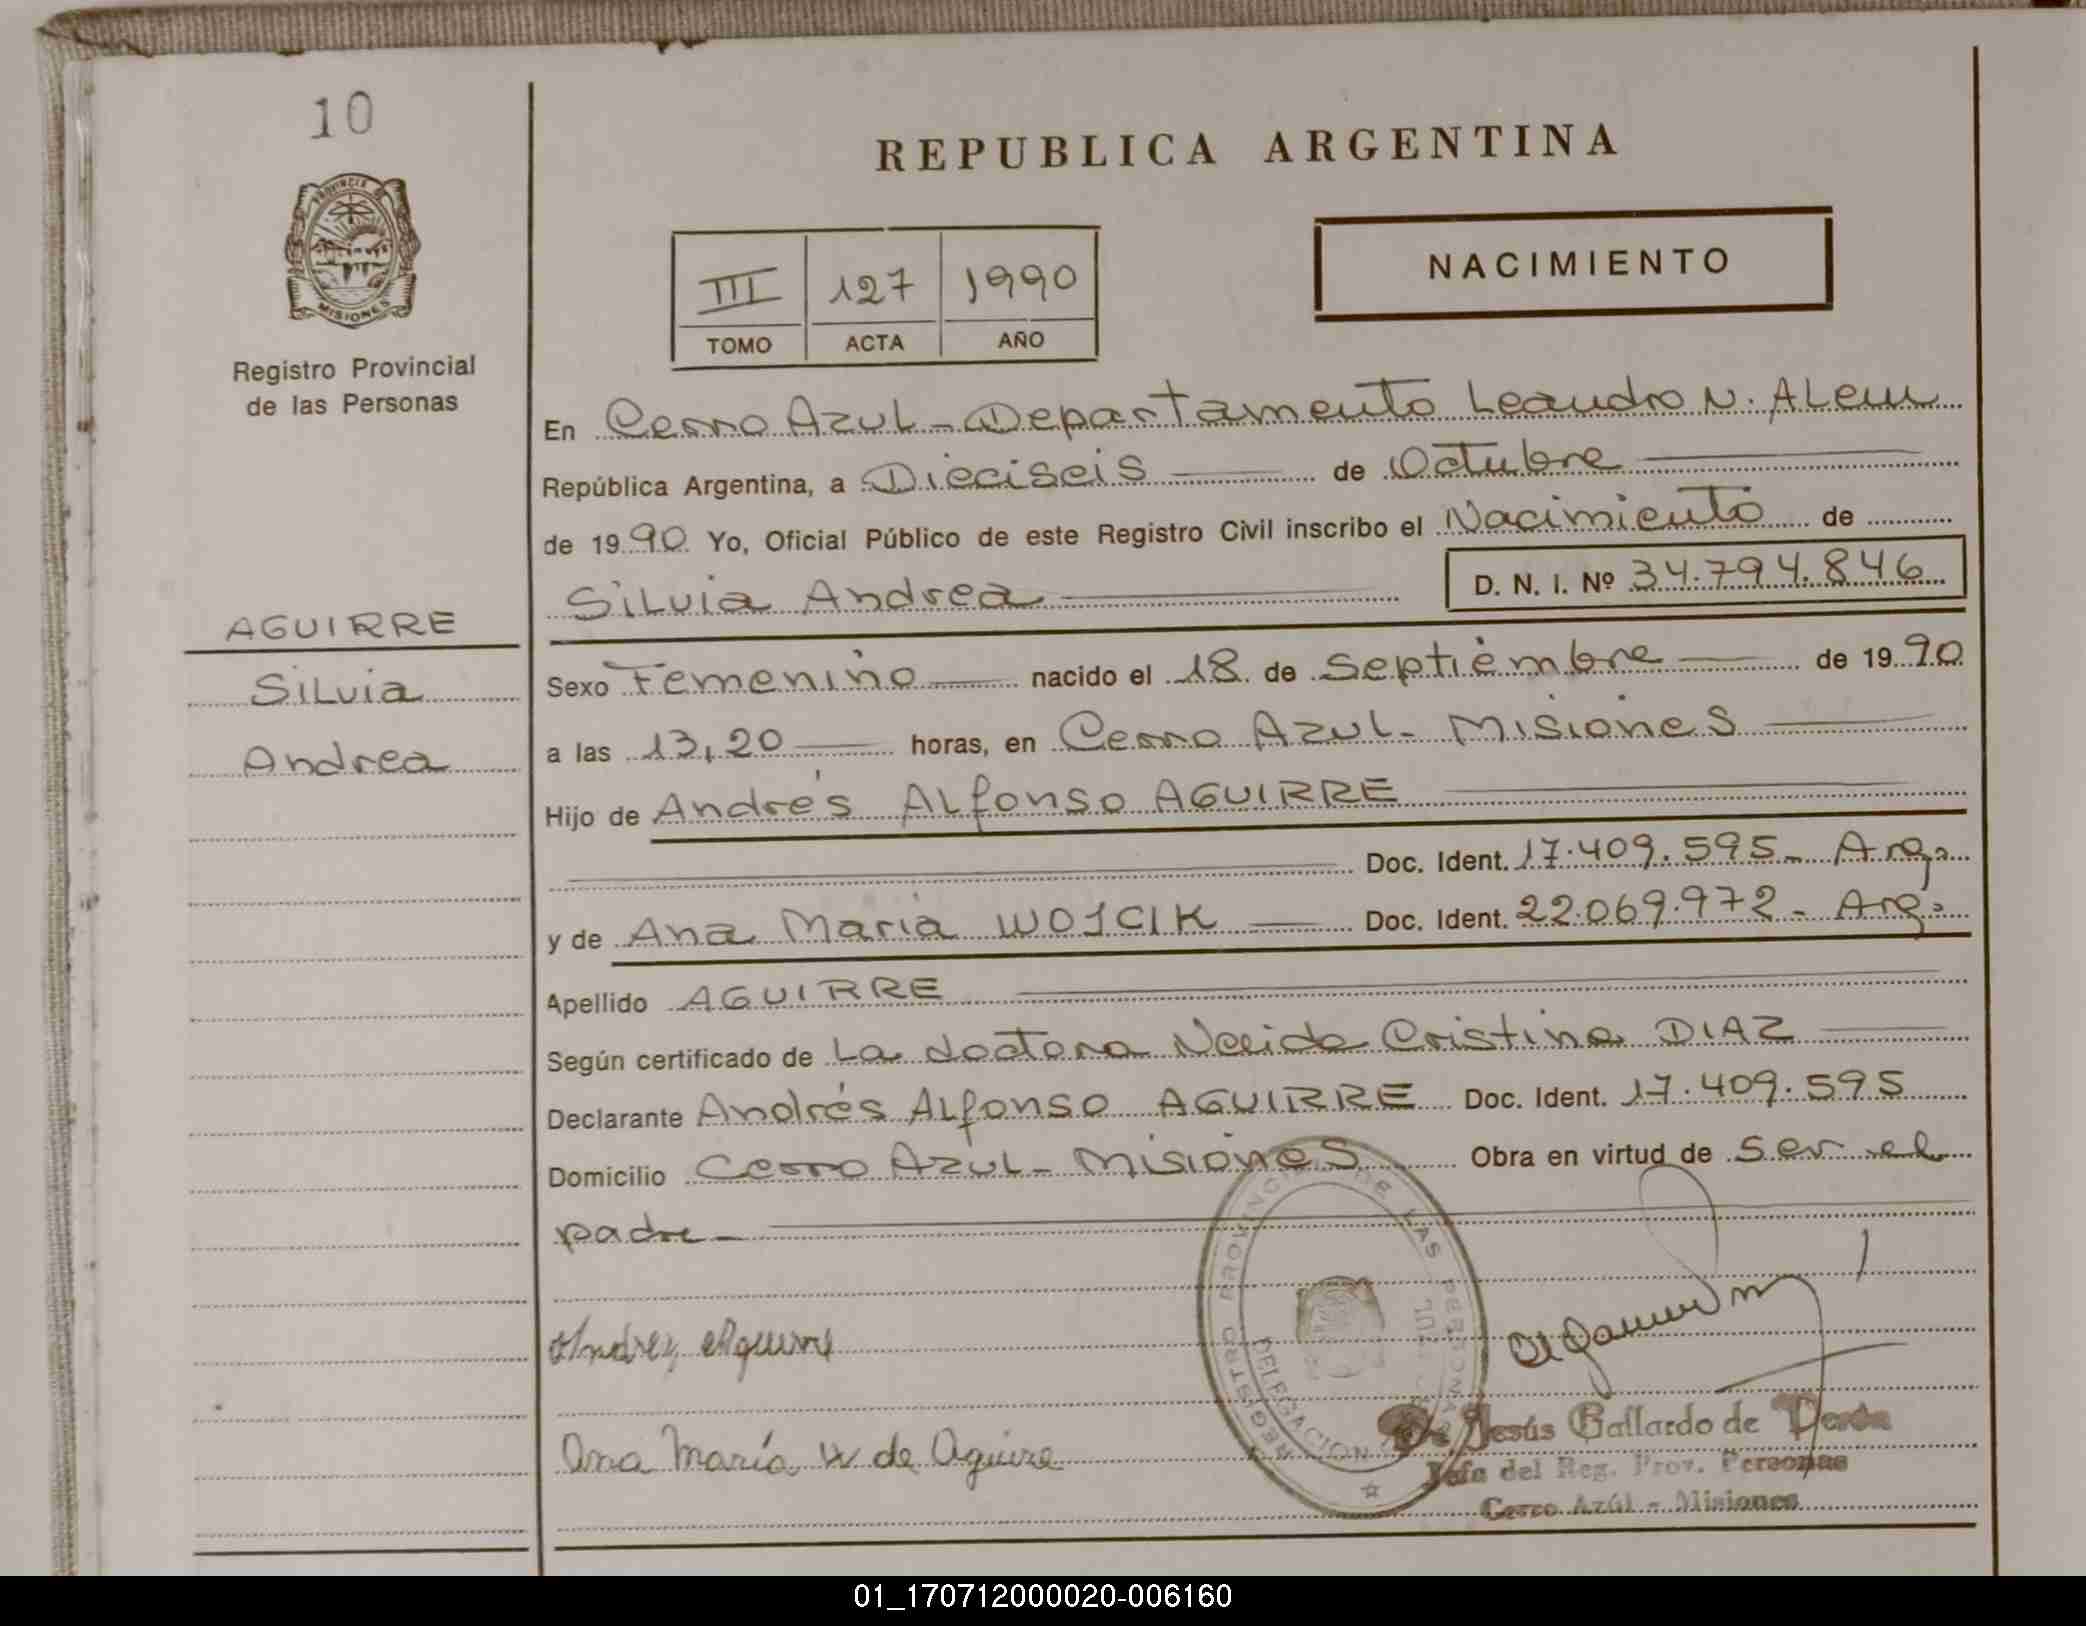 10
PROVINCIA DE
MISIONES
Registro Provincial
de las Personas
AGUIRRE
Silvia
Andrea
REPUBLICA ARGENTINA
III 127 1990
TOMO ACTA AÑO
NACIMIENTO
En Cerro Azul - Departamento Leandro N. Alem
República Argentina, a Dieciseis de Octubre
de 1990 Yo, Oficial Público de este Registro Civil inscribo el Nacimiento de
Silvia Andrea D. N. I. Nº 34.794.846
Sexo Femenino nacido el 18 de Septiembre de 1990
a las 13,20 horas, en Cerro Azul - Misiones
Hijo de Andrés Alfonso AGUIRRE
Doc. Ident. 17.409.595 - Arg.
y de Ana Maria WOJCIK Doc. Ident. 22.069.972 - Arg.
Apellido AGUIRRE
Según certificado de La doctora Cristina DIAZ
Declarante Andrés Alfonso AGUIRRE Doc. Ident. 17.409.595
Domicilio Cerro Azul - Misiones Obra en virtud de ser el
padre -
REGISTRO PROVINCIAL DE LAS PERSONAS
DELEGACION
Andrez Aguirre
Ana María W de Aguirre
Jesús Gallardo de Perón
Jefe del Reg. Prov. Personas
Cerro Azúl - Misiones
01_170712000020-006160